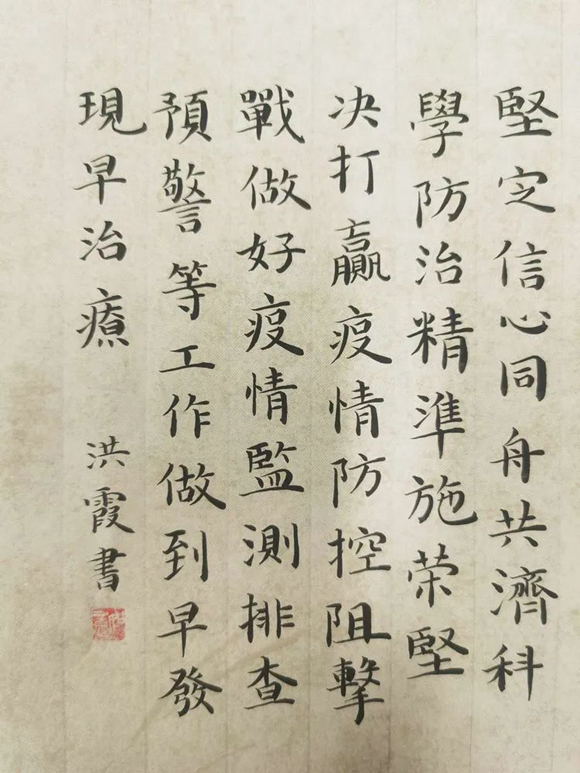 堅定信心同舟共濟科
學防治精準施荣堅
决打贏疫情防控阻擊
戰做好疫情監測排查
預警等工作做到早發
現早治療
洪霞書